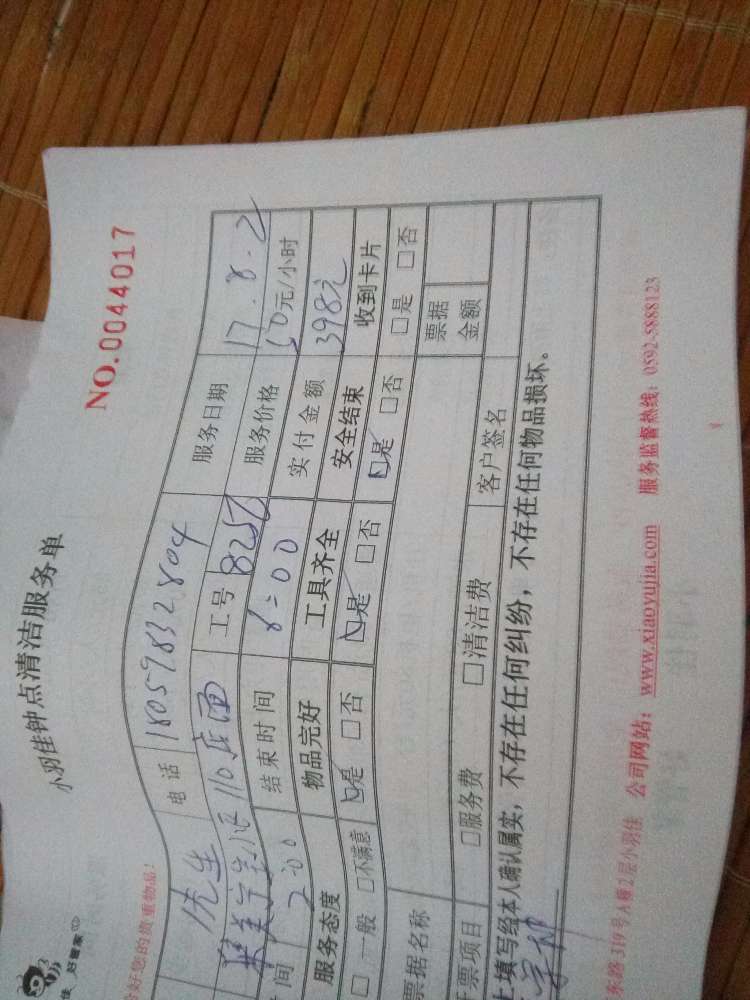 小羽佳钟点清洁服务单
NO.0044017
好您的贵重物品!
先生 电话 18059832804 服务日期 17.8.2
110店面 工号 服务价格 50元/小时
间 2:00 结束时间 6:00 实付金额 398元
服务态度 物品完好 工具齐全 安全结束 收到卡片
□一般 □不满意 ☑是 □否 ☑是 □否 ☑是 □否 □是 □否
票据名称 票据金额
开票项目 □服务费 □清洁费 客户签名
填写经本人确认属实，不存在任何纠纷，不存在任何物品损坏。
东路319号A幢2层小羽佳 公司网站：www.xiaoyujia.com 服务监督热线：0592-5888123